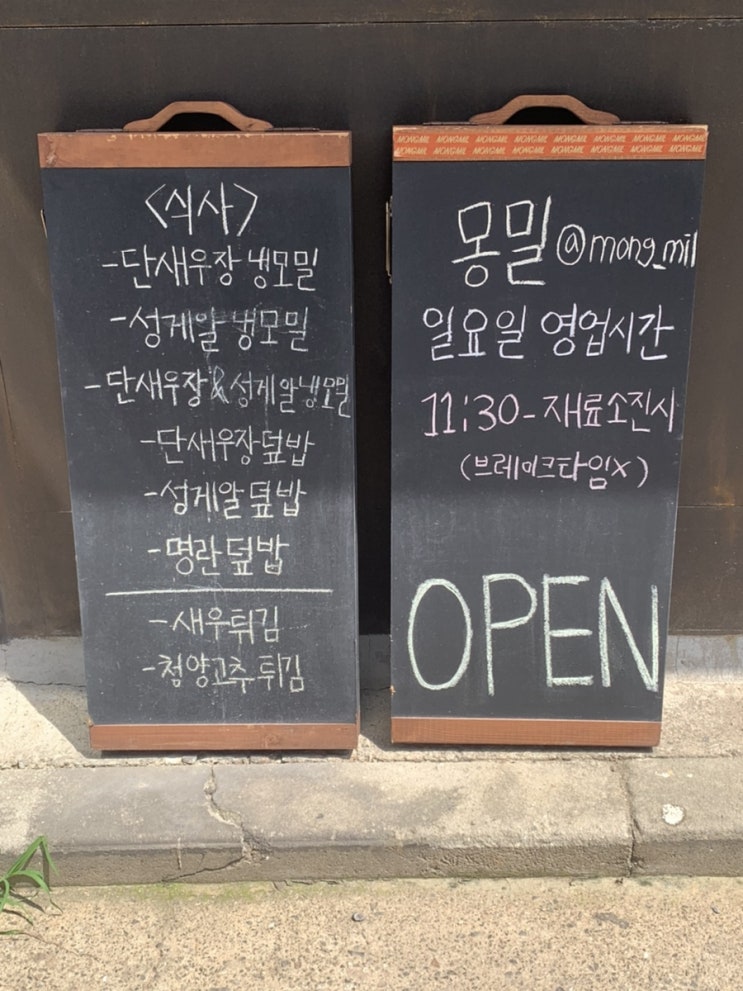 <식사>
-단새우장 냉모밀
-성게알 냉모밀
-단새우장&성게알냉모밀
-단새우장덮밥
-성게알덮밥
-명란덮밥
-새우튀김
-청양고추튀김
MONGMIL MONGMIL MONGMIL MONGMIL MONGMIL MONGMIL MONGMIL MONGMIL
MONGMIL MONGMIL MONGMIL MONGMIL MONGMIL MONGMIL MONGMIL MONGMIL
몽밀 @mong_mil
일요일 영업시간
11:30-재료소진시
(브레이크타임x)
OPEN